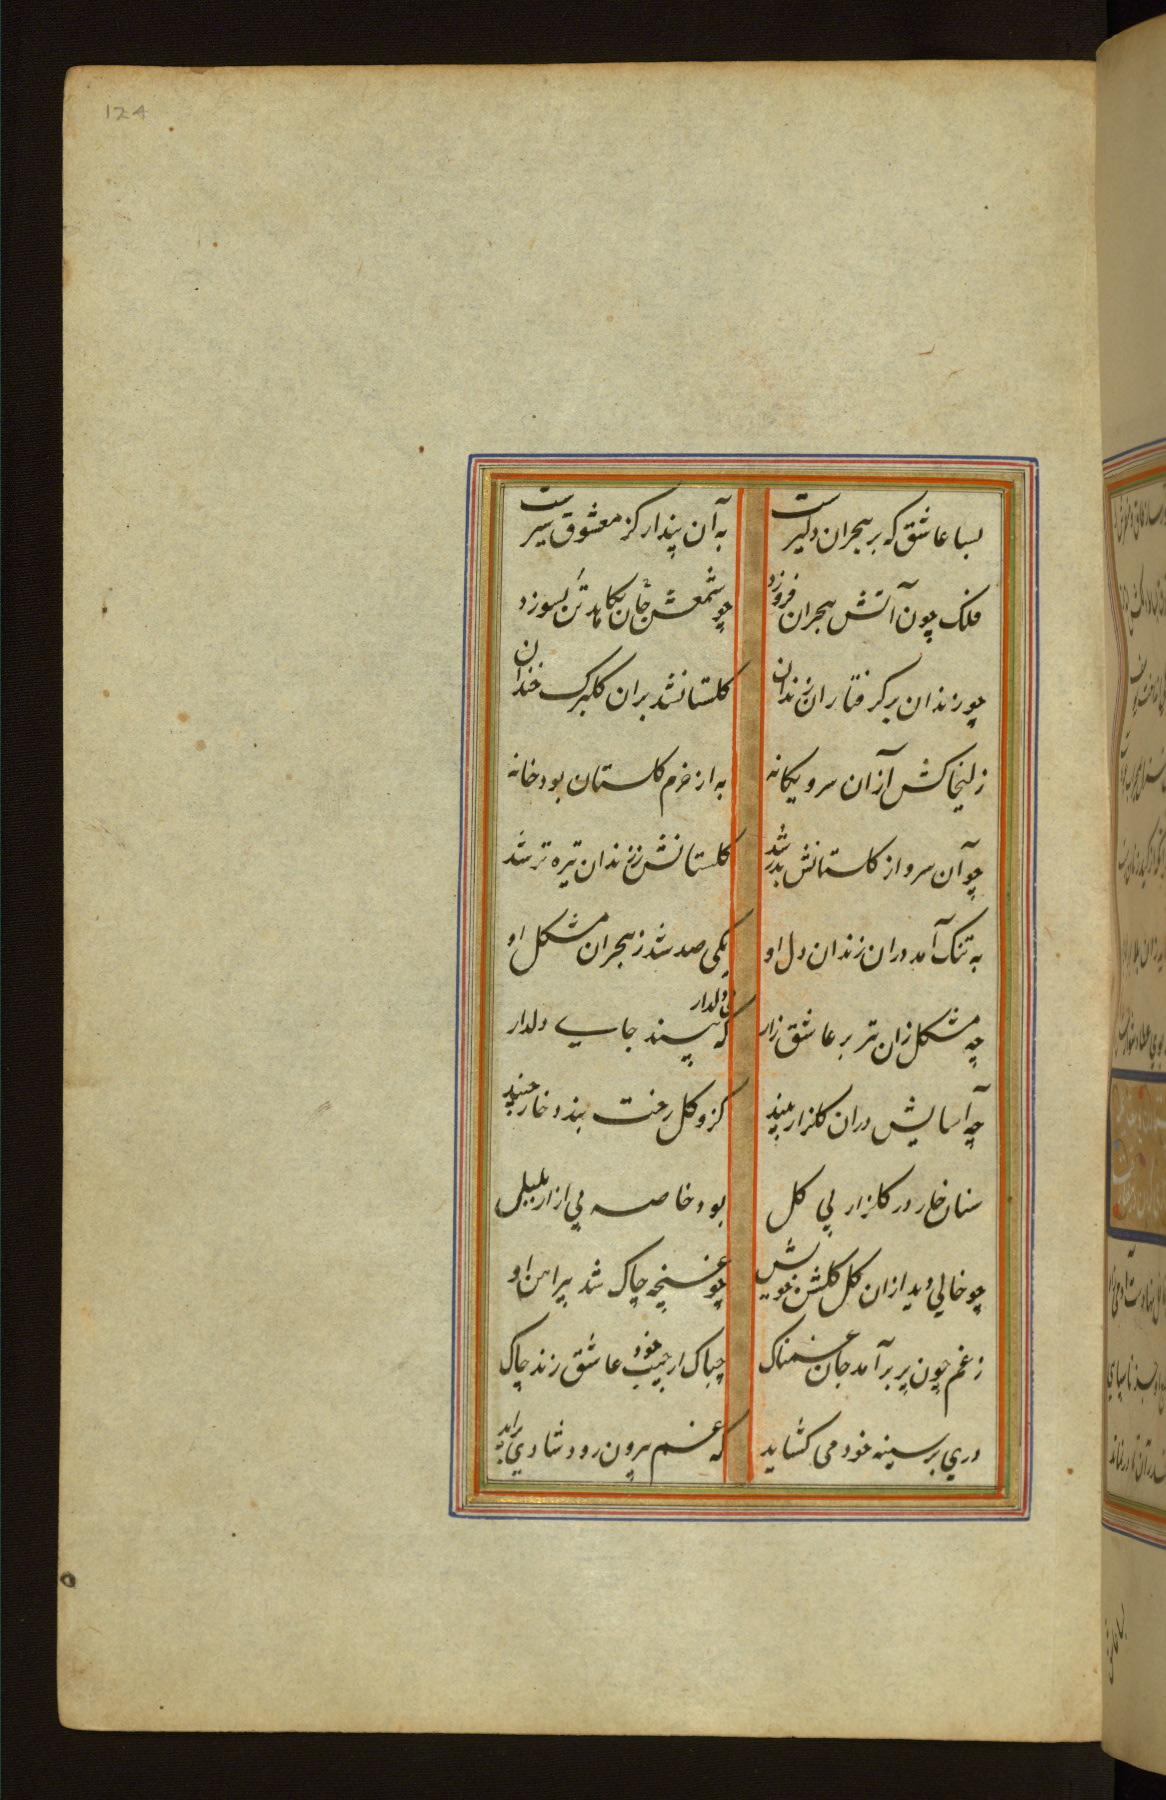 124
بسا عاشق که بر هجران دلیرست
به آن پندار کز معشوق سیرست
فلک چون آتش هجران فروزد
چو شمعش جان بکاهد تن بسوزد
چو زندان بر گرفتاران زندان
گلستانشد بران گلبرگ خندان
زلیخا کش از آن سرو یگانه
به از خرم گلستان بود خانه
چو آن سرو از گلستانش بدر شد
گلستانش ز زندان تیره تر شد
به تنک آمد دران زندان دل او
یکی صد شد ز هجران مشکل او
چه مشکل زان تر بر عاشق زار
که بی دلدار بیند جای دلدار
چه آسایش دران گلزار بیند
کزو گل رخت بندد خار چیند
سنان خار در گلزار بی گل
بود خاصه پی ازار بلبل
چو خالی دید از ان گل گلشن خویش
چو غنچه چاک شد پیراهن او
ز غم چون پر برآمد جان غمناک
چباک ار جیب خود عاشق زند چاک
دری بر سینه خود می کشاید
که غم بیرون رود شادی براید